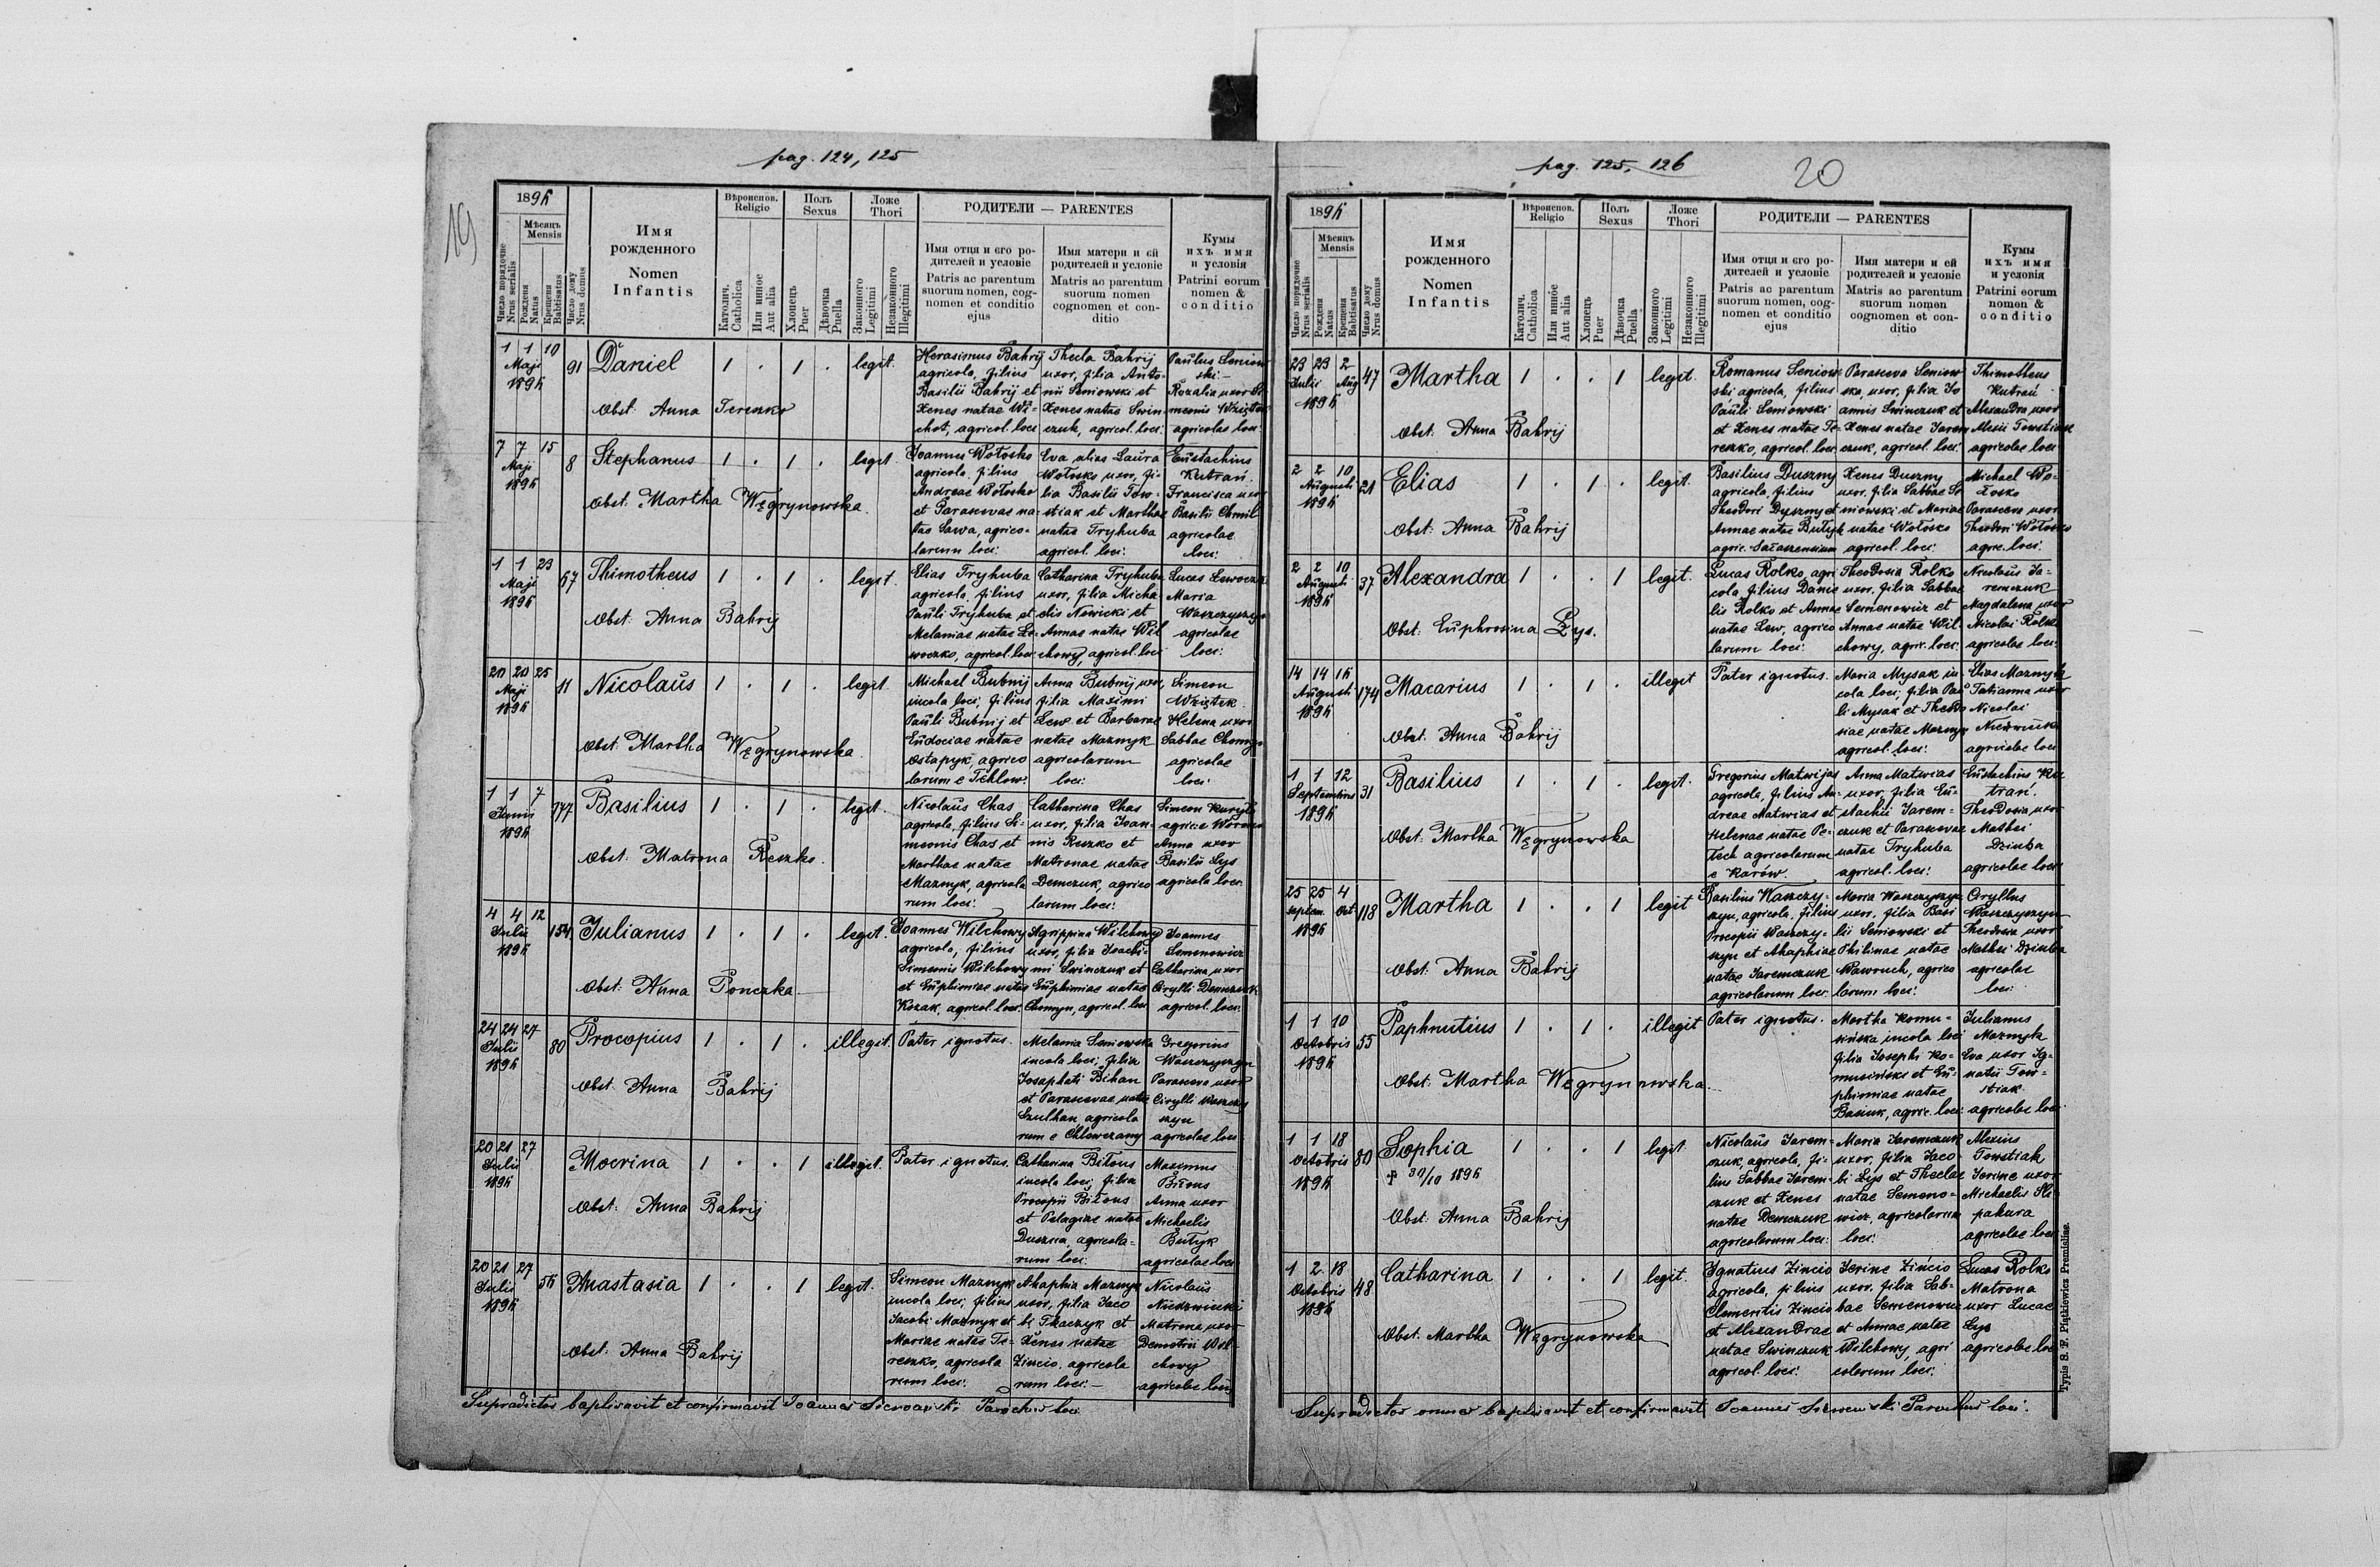 pag. 124, 125
19
1896
Мѣсяць
Mensis
Число порядочне
Nrus serialis
Рождена
Natus
Крещена
Babtisatus
Число дому
Nrus domus
Имя
рожденного
Nomen
Infantis
Вѣроиспов.
Religio
Католич.
Catholica
Или инное
Aut alia
Полъ
Sexus
Хлопець
Puer
Дѣвочка
Puella
Ложе
Thori
Законного
Legitimi
Незаконного
Illegitimi
РОДИТЕЛИ — PARENTES
Имя отця и єго ро-
дителей и условіє
Patris ac parentum
suorum nomen, cog-
nomen et conditio
ejus
Имя матери и ей
родителей и условіє
Matris ac parentum
suorum nomen
cognomen et con-
ditio
Кумы
ихъ имя
и условія
Patrini eorum
nomen &
conditio
1 1 10
Maji
1896
91
Daniel
1 . 1 .
legit.
Obst. Anna Tereszko
Herasimus Bahrij
agricola, filius
Basilii Bahrij et
Xenes natae Wi-
chot, agricol. loci
Thecla Bahrij
uxor, filia Anto-
nii Seniowski et
Xenes natae Swin-
czuk, agricol. loci.
Paulus Seniow
ski -
Rozalia uxor Si
meonis Wziętek
agricolae loci.
7 7 15
Maji
1896
8
Stephanus
1 . 1 .
legit
Obst. Martha Węgrynowska.
Joannes Wołosko
agricola, filius
Andreae Wołosko
et Parascevae na-
tae Sawa, agrico-
larum loci.
Eva alias Laura
Wołosko uxor, fi-
lia Basilii Tow-
stiak et Marthae
natae Tryhuba
agricol. loci.
Eustachius
Kutrań.
Francisca uxor
Basilii Chmil
agricolae
loci.
1 1 23
Maji
1896
67
Thimotheus
1 . 1 .
legit.
Obst. Anna Bahrij
Elias Tryhuba
agricola, filius
Pauli Tryhuba et
Melaniae natae Le-
woczko, agricol. loci.
Catharina Tryhuba
uxor, filia Micha-
elis Nowicki et
Annae natae Wil
chowy, agricol. loci
Lucas Lewoczko
Maria
Waszczyszyn
agricolae
loci.
20 20 25
Maji
1896
11
Nicolaus
1 . 1 .
legit
Obst. Martha Węgrynowska.
Michael Bubnij
incola loci, filius
Pauli Bubnij et
Eudociae natae
Ostapyk, agrico
larum e Tehlow.
Anna Bubnij uxor,
filia Maximi
Lew et Barbarae
natae Mazmyk
agricolarum
loci.
Simeon
Wziętek.
Helena uxor
Sabbae Chomyn
agricolae
loci.
1 1 7
Junii
1896
177
Basilius
1 . 1 .
legit.
Obst. Matrona Reszko.
Nicolaus Chas
agricola, filius Si-
meonis Chas et
Marthae natae
Mazmyk, agricola
rum loci.
Catharina Chas
uxor, filia Joan-
nis Reszko et
Matronae natae
Demczuk, agrico
larum loci.
Anna uxor
Basilii Lys
agricola loci.
4 4 12
Julii
1896
154
Julianus
1 . 1 .
legit.
Obst. Anna Ponczka
Joannes Wilchowy
agricola, filius
Simeonis Wilchowy
et Euphimiae natae
Kozak, agricol. loci.
Agrippina Wilchowy
uxor, filia Joachi-
mi Swinczuk et
Euphimiae natae
Chomyn, agricol. loci
Joannes
Semenowicz
Catharina uxor
Cirylli Demczuk
agricol. loci.
24 24 27
Julii
1896
80
Procopius
1 . 1 .
illegit.
Obst. Anna Bahrij
Pater ignotus.
Melania Seniowska
incola loci, filia
Josaphati Bihan
et Parascevae natae
Szulhan, agricola
rum e Chlowczany
Gregorius
Waszczyszyn
Parasceva uxor
Cirylli Waszczy
szyn
agricolae loci
20 21 27
Julii
1896
Mocrina
1 . . 1
illegit.
Obst. Anna Bahrij
Pater ignotus.
Catharina Biłous
incola loci, filia
Procopii Biłous
et Pelagiae natae
Duszna, agricola-
rum loci.
Maximus
Biłous
Anna uxor
Michaelis
Butyk
agricolae loci
20 21 27
Julii
1896
56
Anastasia
1 . . 1
legit.
Obst. Anna Bahrij
Simeon Mazmyk
incola loci, filius
Jacobi Mazmyk et
Mariae natae Te-
reszko, agricola
rum loci.
Ahaphia Mazmyk
uxor, filia Jaco
bi Tkaczyk et
Xenes natae
Zincio, agricola
rum loci.—
Nicolaus
Niedzwiecki
Matrona uxor
Demetrii Wil-
chowy
agricolae loci
Supradictos baptisavit et confirmavit Joannes Parochus loci
pag. 125, 126
20
1896
Мѣсяць
Mensis
Число порядочне
Nrus serialis
Рождена
Natus
Крещена
Babtisatus
Число дому
Nrus domus
Имя
рожденного
Nomen
Infantis
Вѣроиспов.
Religio
Католич.
Catholica
Или инное
Aut alia
Полъ
Sexus
Хлопець
Puer
Дѣвочка
Puella
Ложе
Thori
Законного
Legitimi
Незаконного
Illegitimi
РОДИТЕЛИ — PARENTES
Имя отця и єго ро-
дителей и условіє
Patris ac parentum
suorum nomen, cog-
nomen et conditio
ejus
Имя матери и ей
родителей и условіє
Matris ac parentum
suorum nomen
cognomen et con-
ditio
Кумы
ихъ имя
и условія
Patrini eorum
nomen &
conditio
23 23 2
Julii Aug
1896
47
Martha
1 . . 1
legit.
Obst. Anna Bahrij
Romanus Seniow
ski agricola, filius
Pauli Seniowski
et Xenes natae Te-
reszko, agricol. loci.
Parasceva Seniow
ska, uxor, filia Jo
annis Swinczuk et
Xenes natae Jarem
czuk, agricol. loci.
Thimotheus
Kutrań
Alexandra uxor
Alexii Towstiak
agricolae loci
2 2 10
Augusti
1896
21
Elias
1 . 1 .
legit.
Obst. Anna Bahrij
Basilius Duszny
agricola, filius
Theodori Dyszny et
Annae natae Butyk
Xenes Duszny
uxor, filia Sabbae Se
niowski et Mariae
natae Wołosko
agricol. loci.
Michael Wo-
łosko
Parasceva uxor
Theodori Wołosko
agric. loci.
2 2 10
Augusti
1896
37
Alexandra
1 . . 1
legit.
Obst. Euphrosina Łys.
Lucas Rolko, agri
cola, filius Danie
lis Rolko et Annae
natae Lew, agrico
larum loci.
Theodosia Rolko
uxor, filia Sabbae
Semenowicz et
Annae natae Wil-
chowy, agric. loci.
Nicolaus Ja-
remczuk
Magdalena uxor
Nicolai Rolko
agricolae loci.
14 14 16
Augusti
1896
174
Macarius
1 . 1 .
illegit
Obst. Anna Bahrij
Pater ignotus.
Maria Mysak in-
cola loci, filia Pau
li Mysak et Theodo
siae natae Mazmyk
agricol. loci.
Elias Mazmyk
Tatianna uxor
Nicolai
agricolae loci
1 1 12
Septembris
1896
31
Basilius
1 . 1 .
legit.
Obst. Martha Węgrynowska
Gregorius Matwijas
agricola, filius An-
dreae Matwias et
Helenae natae Pe-
tech agricolarum
e Karów.
Anna Matwias
uxor, filia Eu-
stachii Jarem-
czuk et Parascevae
natae Tryhuba
agricol. loci.
Eustachius Ku
trań.
Theodosia uxor
Mathei
Dziuba
agricolae loci
25 25 4
Septem. Oct
1896
118
Martha
1 . . 1
legit
Obst. Anna Bahrij
Basilius Waszczy-
szyn, agricola, filius
Procopii Waszczy-
szyn et Ahaphiae
natae Jaremczuk
agricolarum loci.
Maria Waszczyszyn
uxor, filia Basi
lii Seniowski et
Philinae natae
Wawruch, agrico
larum loci.
Cyryllus
Waszczyszyn
Theodosia uxor
Mathei Dziuba
agricolae
loci.
1 1 10
Octobris
1896
55
Paphnutius
1 . 1 .
illegit
Obst. Martha Węgrynowska.
Pater ignotus.
Martha Komu-
sińska incola loci
filia Josephi Ko-
musiński et Eu-
phimiae natae
Basiuk, agric. loci.
Julianus
Mazmyk
Eva uxor Ig-
natii Tow-
stiak
agricolae loci
1 1 18
Octobris
1896
80
Sophia
1 . . 1
legit
✝ 30/10 1896
Obst. Anna Bahrij
Nicolaus Jarem-
czuk, agricola, fi-
lius Sabbae Jarem-
czuk et Xenes
natae Demczuk
agricolarum loci.
Maria Jaremczuk
uxor, filia Jaco-
bi Lys et Theclae
natae Semeno-
wicz, agricolarum
loci.
Alexius
Towstiak
Irine uxor
Michaelis Sli-
pakura
agricolae loci
1 2 18
Octobris
1896
48
Catharina
1 . . 1
legit.
Obst. Martha Węgrynowska
Ignatius Zincio
agricola, filius
Clementis Zincio
et Alexandrae
natae Swinczuk
agricol. loci.
Irine Zincio
uxor, filia Sab-
bae Semenowicz
et Annae natae
Wilchowy, agri
colarum loci.
Lucas Rolko
Matrona
uxor Lucae
Lys
agricolae loci
Supradictos omnes baptisavit et confirmavit Joannes Parochus loci.
Typis S. F. Piątkiewicz Premisliae.